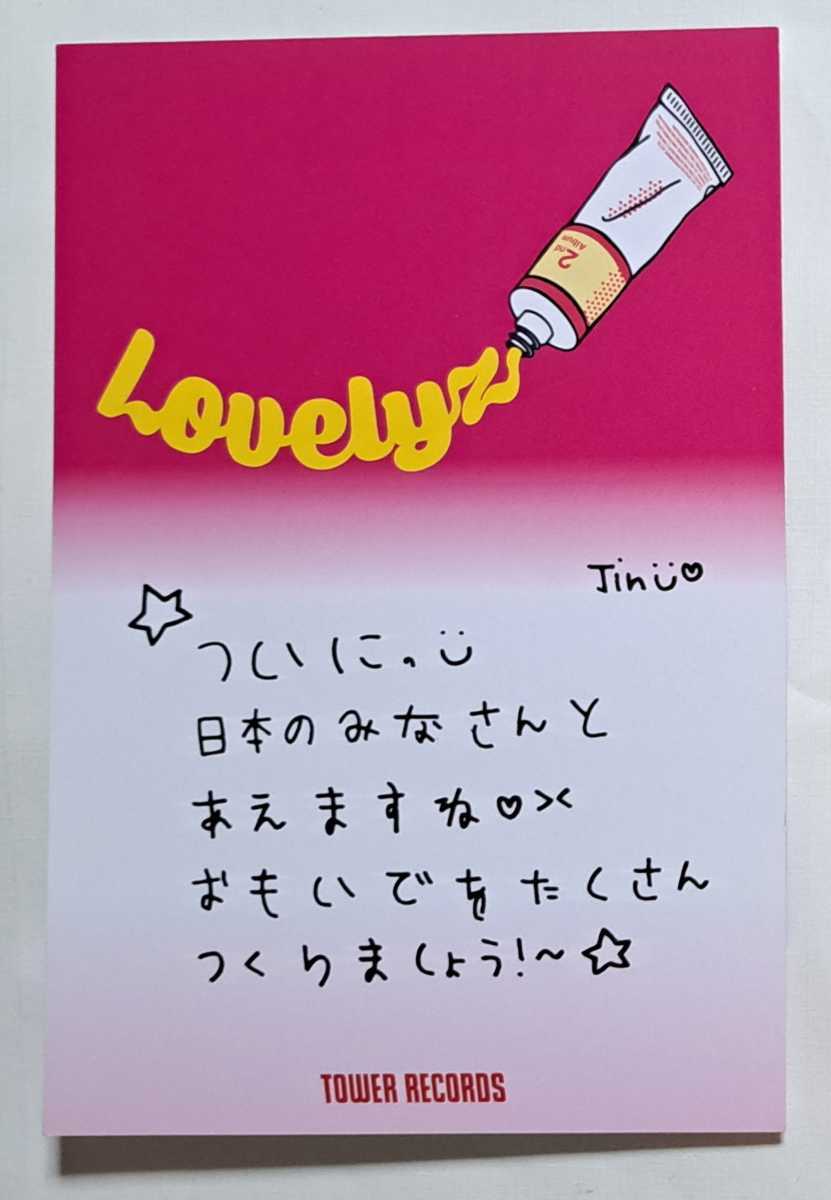 2nd
Album
Lovelyz
Jin ü♡
☆
ついに。ü
日本のみなさんと
あえますね♡><
おもいでをたくさん
つくりましょう!~☆
TOWER RECORDS